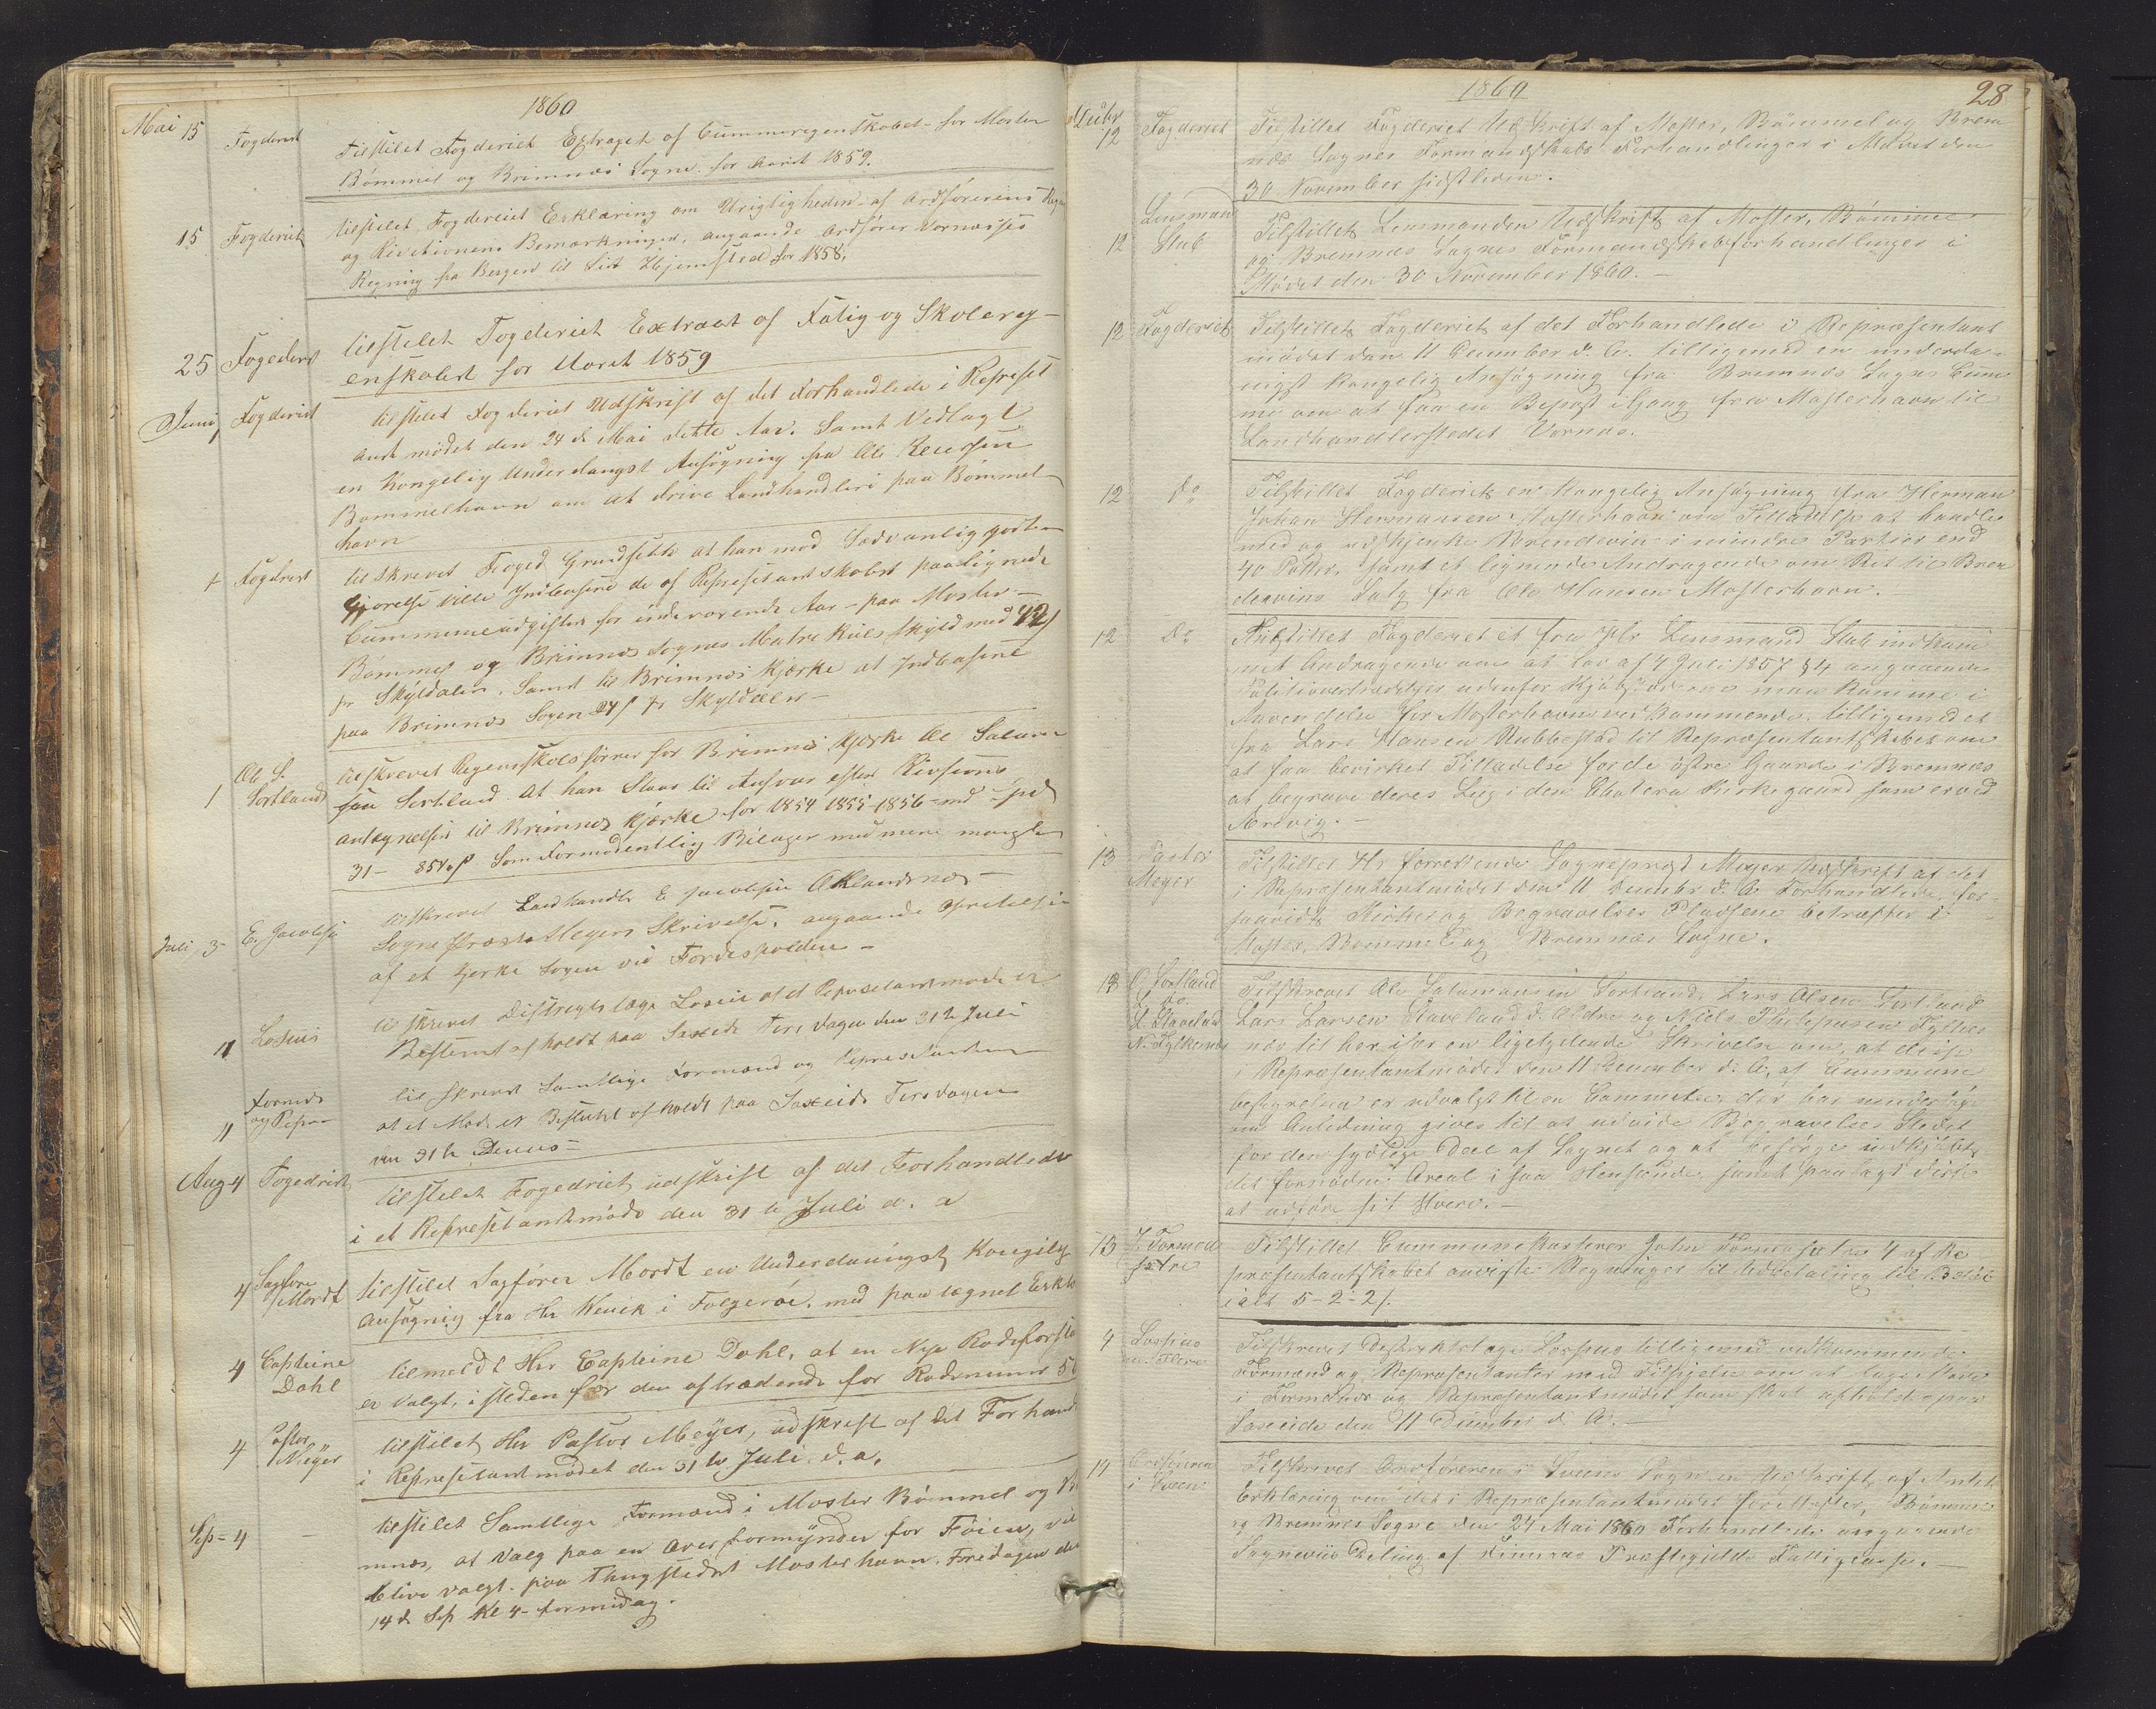 1860
Mai 15 Fogderiet tilstilet Fogderiet Extraget af Cummeregenskabet for Moster
Bømmel og Brimnæs Sogne for Aaret 1859.
15 Fogderiet tilstilet Fogderiet Erklæring om Urigtigheden af Ordførerens
og Rivetionens Bemærkninger, angaaende Ordfører Vornæsses
Regning fra Bergen til Sit Hjemsted for 1858.
25 Fogederiet tilstilet Fogderiet Extraat af Fatig og Skolereg-
enskabet for Aaret 1859
Juni 1 Fogderiet tilstilet Fogderiet Udskrift af det Forhandlede i Represet
ant mødet den 24 de Mai dette Aar. Samt Vedlagt
en Kongelig Underdanigst Ansøgning fra Ole
Bømmelhavn om at drive Landhandleri paa Bømmel-
havn
Fogderiet tilskrevet Foged Grundsette at han mod Sædvanlig godt-
gjørelse ville Indcasere de af Represetantskabet paalignede
Cummuneudgifter for indeværende Aar - paa Moster -
Bømmel og Brimnæs Sognes Matrekuls skyld med 42 s
pr Skylddaler, Samt til Brimnæs Kjørke at Indcasere
paa Brimnæs Sogen 24 s pr Skylddaler -
1 Ole S. Sortland tilskrevet Regenskabsfører for Brimnæs Kjørke Ole Salamo
sen Sortland. At han Staar til Ansvar efter Rivsions
antegnelser til Brimnæs Kjørke for 1854 1855-1856 -
31 - 85 Som Formodentlig Bilager med mere mangler
Juli 3 E. Jacobsen tilskrevet Landhandler E Jacobsen Oklandsnæs -
Sogne Præst Meyers Skrivelse, angaaende Oprettelse
af et Kjørke Sogen vid Fordespolden -
11 Losius tilskrevet Distrigtslæge Losius at et Represetantmøde er
Bestemt afholdt paa Saxeide Tirsdagen den 31te Juli
11 Formænd og Repr- tilskrevet Samtlige Formænd og Represetanter
at et Møde er Bestemt afholdt paa Saxeide Tirsdagen
den 31te Dennes -
Aug 4 Fogedriet tilstilet Fogedriet udskrift af det Forhandlede
i et Represetantmøde den 31te Juli d. a
4 Sagføre Mordt tilstilet Sagfører Mordt en Underdanigst Kongelig
Ansøgnig fra Hr Kenik i Folgerøe, med paa tegnet Erkl
4 Capteine Dahl tilmeldt Hr Capteine Dahl, at en Nye Rodeforsta
er Valgt, i steden for den aftrædende for Rodenumer 5
4 Pastor Meyer tilstilet Hr Pastor Meyer, udskrift af det Forhand
i Represetantmødet den 31te Juli. d. a.
Sep- 4 - tilstilet Samtlige Formænd i Moster Bømmel og B
mnæs, at Valg paa en Overformynder for Føien, vil
blive valgt. paa Thingstedet Mosterhavn. Fredagen de
14 d Sep Kl 4 - formidag.
1860
28
Decbr 12 Fogderiet Tilstillet Fogderiet Udskrift af Moster, Bømmel og Brem
næs Sognes Formandskabs Forhandlinger i Mødet den
30 November sidstleden.
12 Lensmand Stub Tilstillet Lensmanden Udskrift af Moster, Bømmel
og Bremnæs Sognes Formandskabsforhandlinger i
Mødet den 30 November 1860. -
12 Fogderiet Tilstillet Fogderiet af det Forhandlede i Repræsentant
mødet den 11 December d. A. tilligemed en underda-
nigst Kongelig Ansøgning fra Bremnæs Sogns Cum
mune om at faa en Bipost igang fra Mosterhavn til
Landhandlerstedet Vornæs.
12 Do Tilstillet Fogderiet en Kongelig Ansøgning fra Herman
Johan Hermansen Mosterhavn om Tilladelse at handle
med og udskjenke Brændevin i mindre Partier end
40 Potter, samt et lignende Andragende om Ret til Bræn
devins Salg fra Ole Hansen Mosterhavn. -
12 Do Tilstillet Fogderiet et fra Hr Lensmand Stub indkom
met Andragende om at Lov af 4 Juli 1857 § 4 angaaende
Politiovertrædelser udenfor Kjøbstæderne maa komme i
Anvendelse for Mosterhavn vedkommende. tilligemed et
fra Lars Hansen Rubbestad til Repræsentantskabet om
at faa bevirket Tilladelse for de østre Gaarde i Bremnæs
at begrave deres Lig i den Cholera Kirkegaard som er ved
Ærevig. -
13 Pastor Meyer Tilstillet Hr forrettende Sognepræst Meyer Udskrift af det
i Repræsentantmødet den 11 Decembr d. A. Forhandlede, for-
saavidt Kirker og Begravelses Pladsene betræffer i
Moster, Bømmel og Bremnæs Sogne.
13 O. Sortland L. do. L. Staveland N. Fylkesnæs Tilskrevet Ole Salamonsen Sortland, Lars Olsen Sortland
Lars Larsen Staveland d. Ældre og Niels Philipusen Fylkes
næs til hver især en ligelydende Skrivelse om, at disse
i Repræsentantmødet den 11 December d. A. af Cummune
bestyrelsen er udvalgt til en Commitee, der har undersøge
om Anledning gives til at udvide Begravelses Stedet
for den sydlige Deel af Sognet og at besørge indkjøbet
det fornødne Areal i saa Henseende, samt paalagt disse
at udføre sit Hverv. -
13 J. Formod sætre Tilstillet Cummunekasserer John Formosætre 4 af Re
præsentantskabet anviste Regninger til Udbetaling til Beløb
ialt 5-2-2 s.
4 Lossius m. Flere Tilskrevet Destriktslæge Lossius tilligemed vedkommende
Formænd og Repræsentanter med Tilhjelse om at tage Møde
i Formands og Repræsentantmødet som skal afholdes paa
Saxeide den 11 December d. A. -
14 Ordføreren i Sveen Tilskrevet Ordføreren i Sveens Sogn en Udskrift af Amtets
Erklæring om det i Repræsentantmødet for Moster, Bømmel
og Bremnes Sogne den 24 Mai 1860 Forhandlede angaaende
Sogneviis Deling af Finnaas Præstegjelds Fattigcasse. -